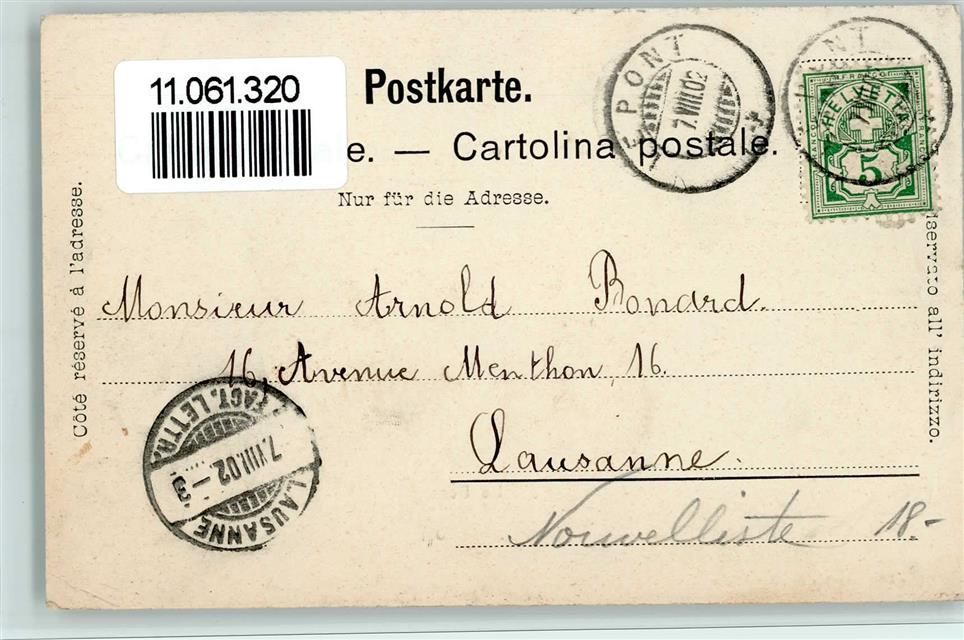 11.061.320
Postkarte.
e. — Cartolina postale.
Nur für die Adresse.
LE PONT
7.VIII.02
PONT
7.VIII
FRANCO
HELVETIA
5
Côté réservé à l'adresse.
iservato all' indirizzo.
Monsieur Arnold Bonard.
16, Avenue Menthon, 16.
Lausanne.
Nouvelliste 18.-
FACT. LETTR.
7.VIII.02 – 3
LAUSANNE